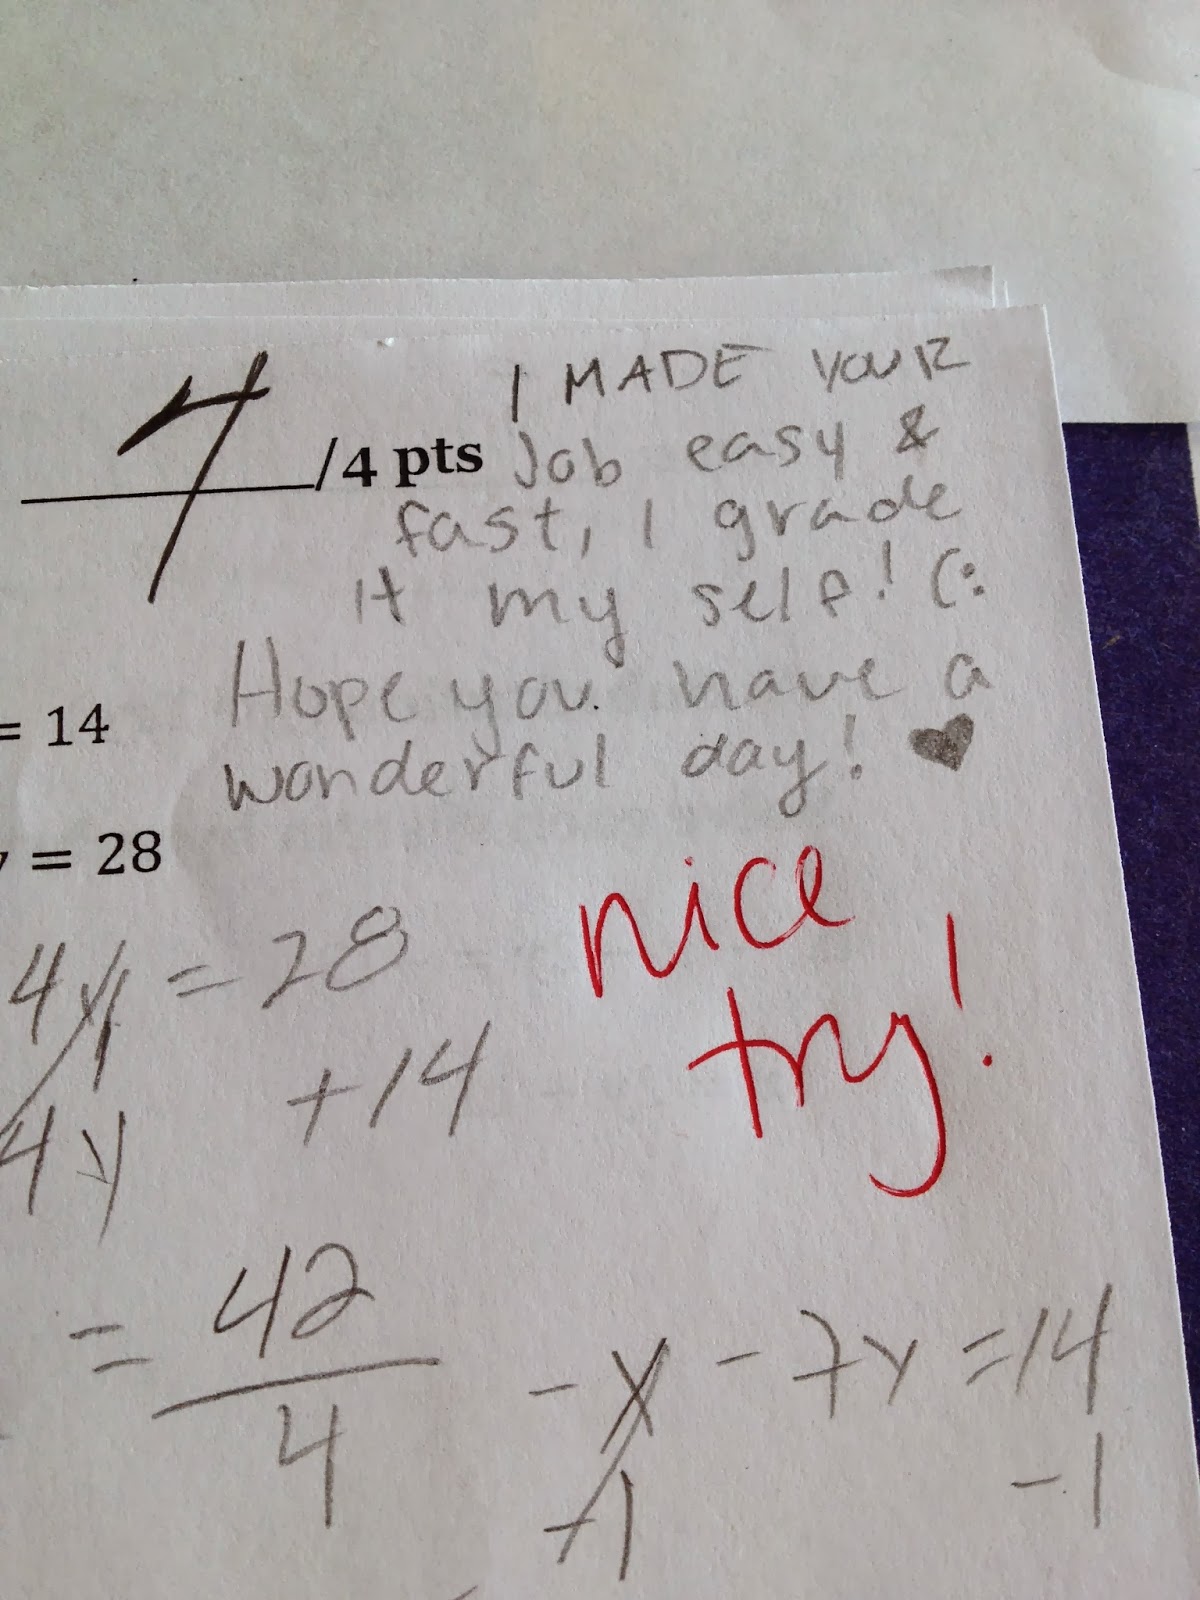 4
/4 pts
I MADE YOUR
Job easy &
fast, I grade
it my self! (:
Hope you have a
wonderful day! ♥
= 14
y = 28
nice
try!
4y = 28
+14
4y
= 42
4
-x - 7y = 14
-1 -1